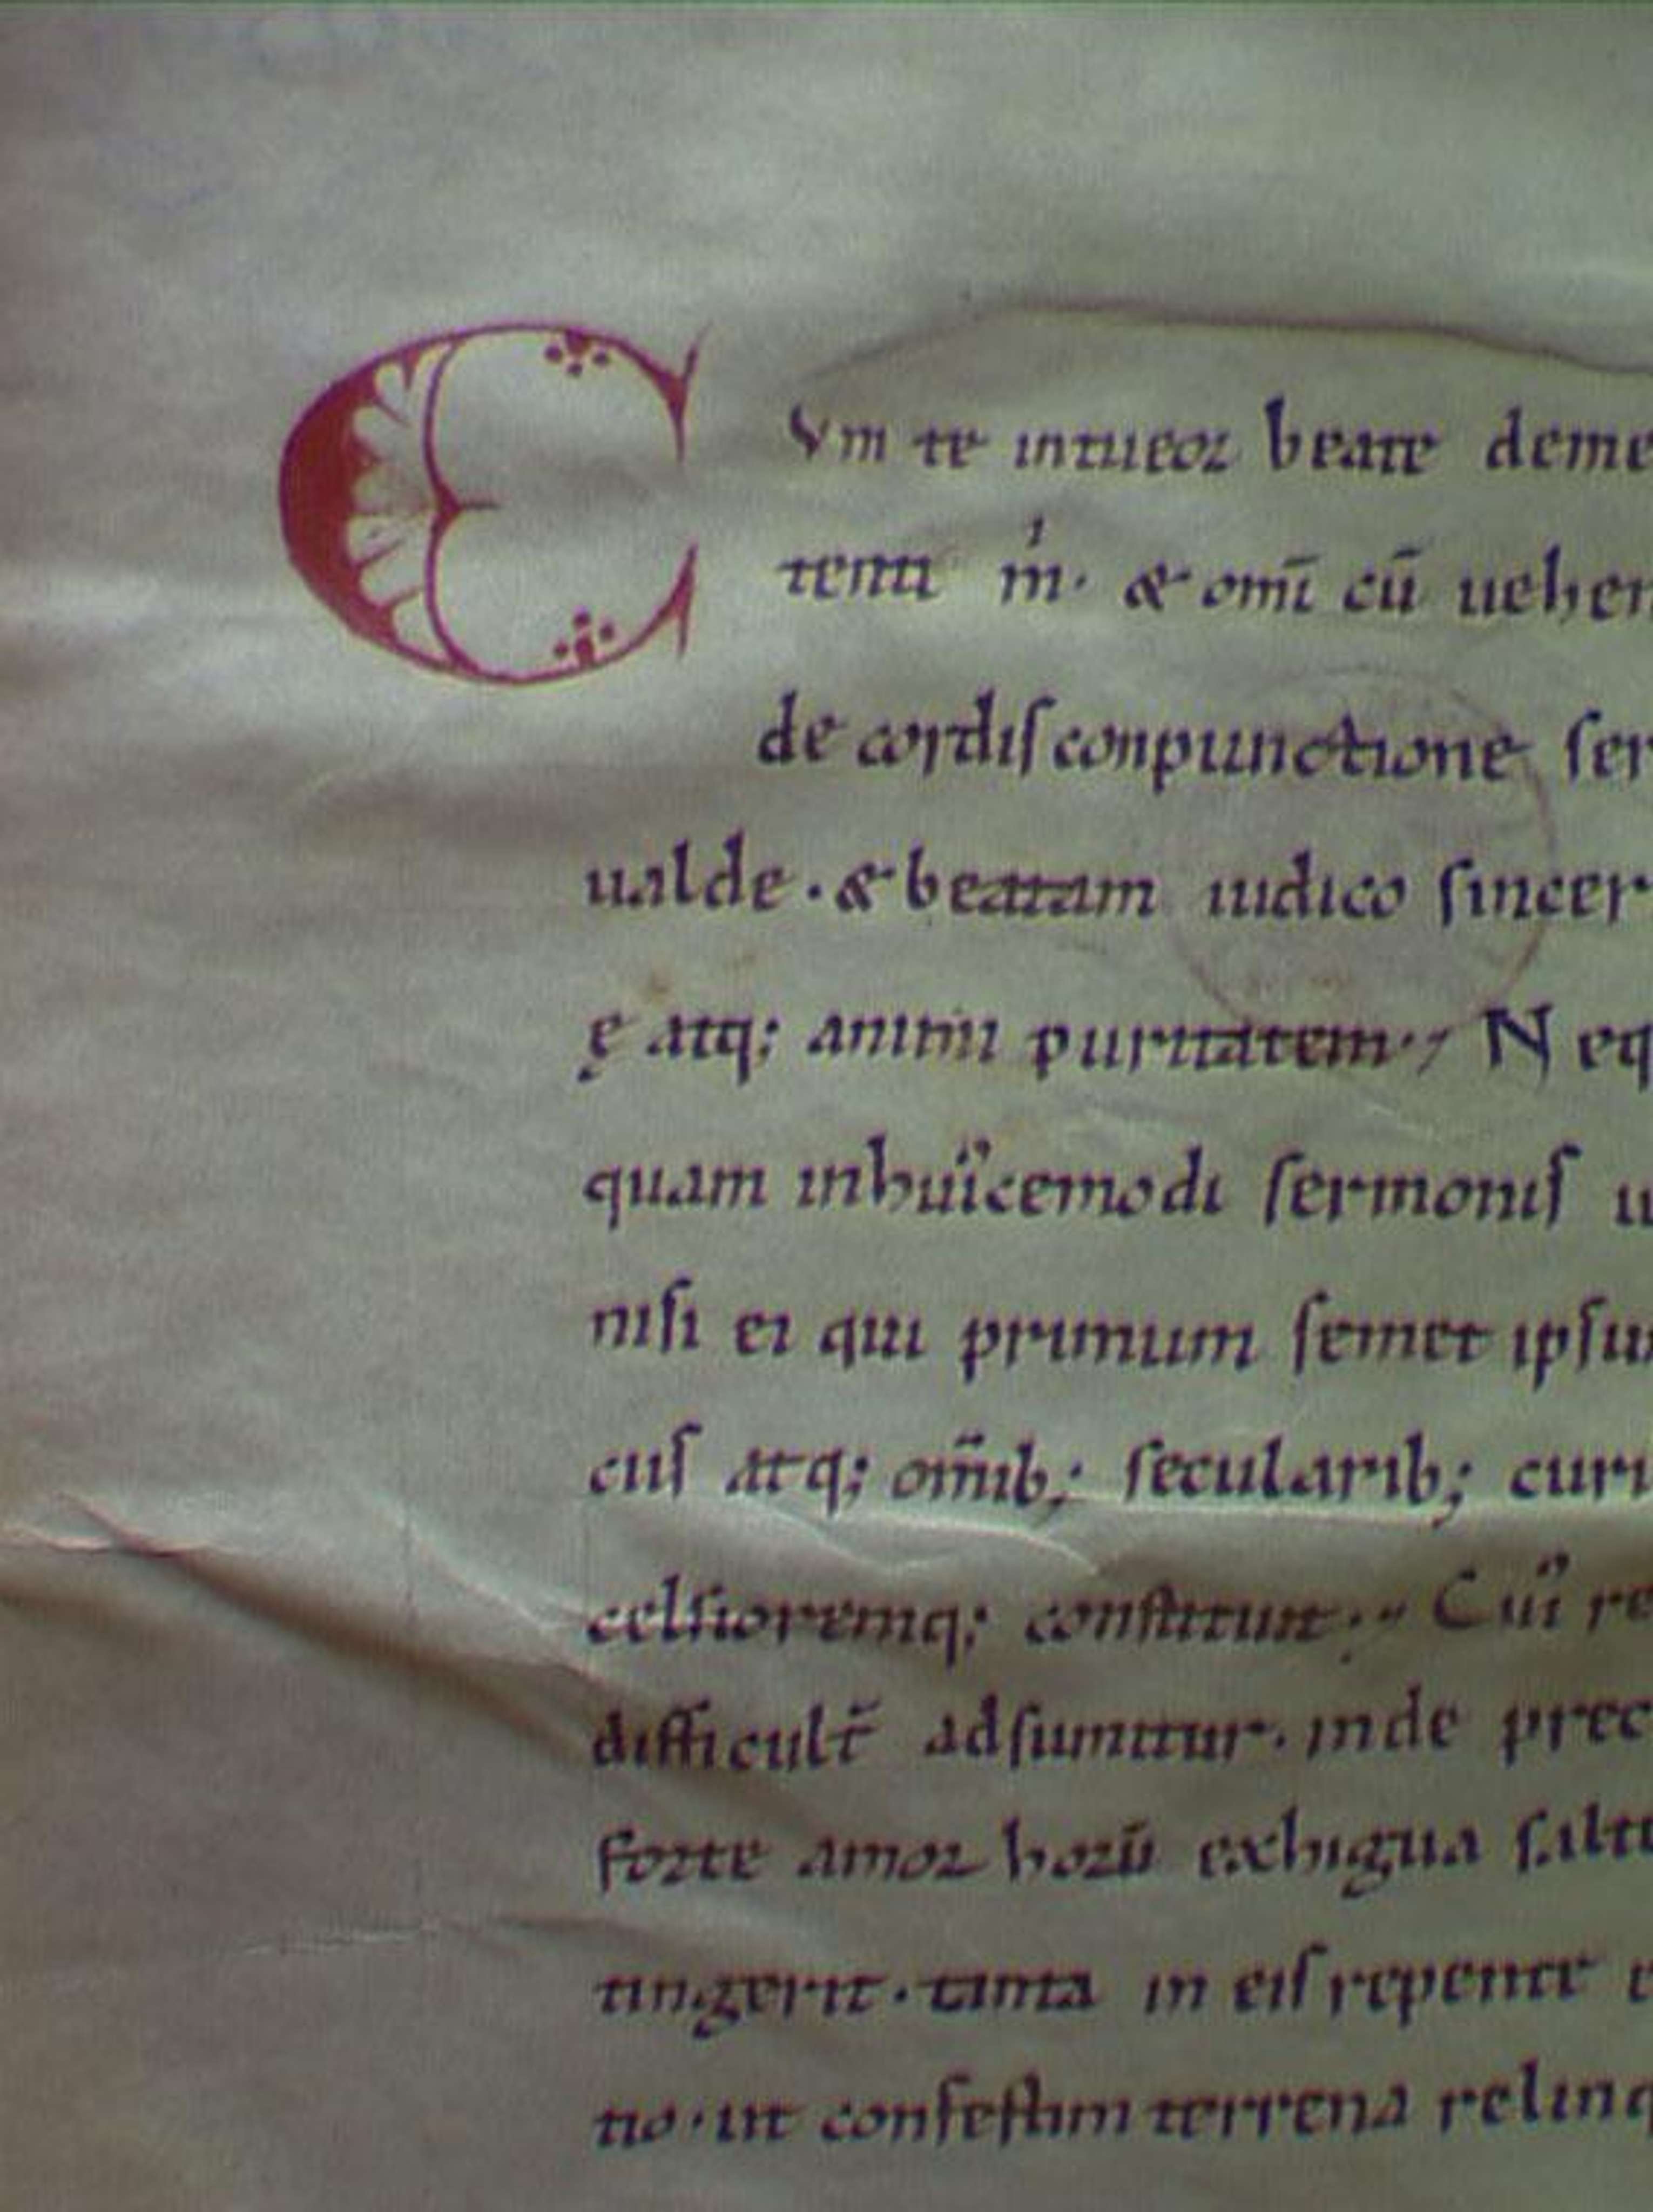 CVm te intueor beate deme
tenti m̅ı· & omī cū uehen
de cordiſ conpunctione ſer
ualde · & beatam iudico ſincer
ę atq; animi puritatem·, Neq
quam inhuı̈cemodi ſermoniſ u
niſi ei qui primum ſemet ipſu
cuſ atq; om̅ib; ſecularib; curi
celſioremq; conſtituit·,, Cuı̉ re
difficult̄ adſumitur. inde prec
forte amor horū exhigua ſalte
tingerit · tanta in eiſ repente
tio · ut confeſtim terrena relinq